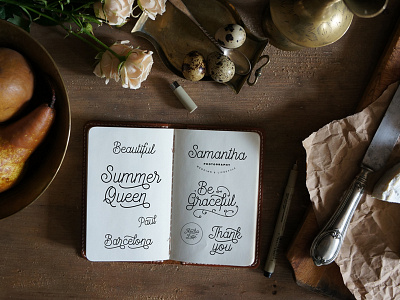 Beautiful
Summer
Queen
Paul
Barcelona
Samantha
PHOTOGRAPHY
WEDDING & LIFESTYLE
Be
Graceful
Thank
you